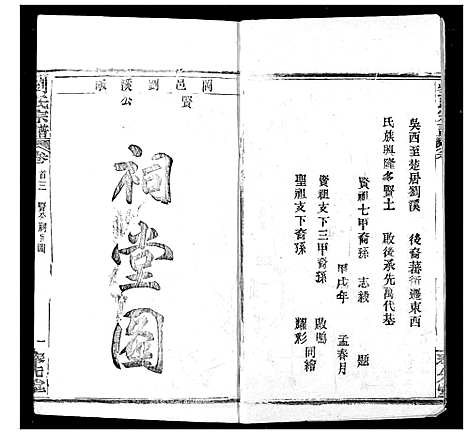 吳西至楚居劉溪　後裔蕃衍遷東西
氏族興隆多賢士　啟後承先萬代基
賢祖七甲裔孫　志毅　題
甲戌年　孟春月
賢祖支下三甲裔孫　啟鳴
聖祖支下裔孫　耀彩　同繪
岡邑劉溪
賢公
祠堂圖
劉氏宗譜
卷首三
賢公祠堂圖
一